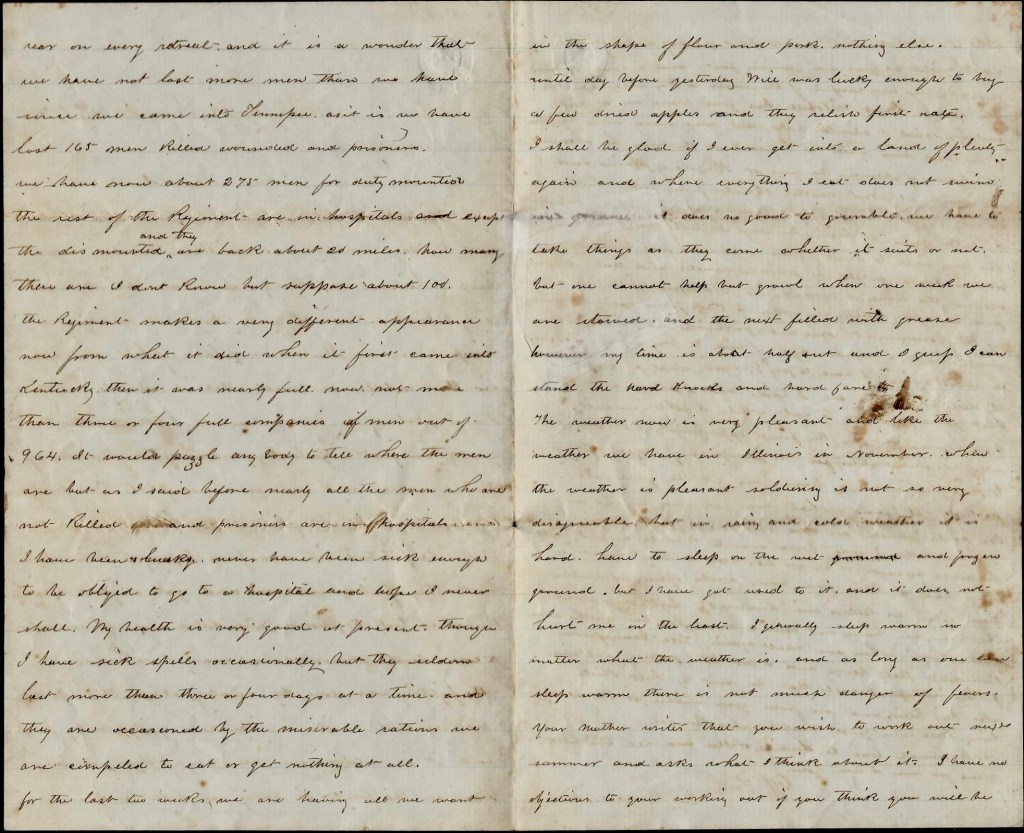 rear on every retreat. and it is a wonder that
we have not lost more men than we have
since we came into Tennessee. as it is we have
lost 165 men Killed wounded and prisoners.
we have now about 275 men for duty mounted
the rest of the Regiment are in hospitals and except
and they
the dismounted, are back about 20 miles. how many
there are I dont Know but suppose about 100.
the Regiment makes a very different appearance
now from what it did when it first came into
Kentucky. then it was nearly full. now. not more
than three or four full companies of men out of
964. It would puzzle any body to tell where the men
are but as I said before nearly all the men who are
not Killed and prisoners are in hospitals
I have been lucky. never have been sick enough
to be obliged to go to a hospital and hope I never
shall. My health is very good at present. though
I have sick spells occasionally. but they seldom
last more than three or four days at a time. and
they are occasioned by the miserable rations we
are compeled to eat or get nothing at all.
for the last two weeks, we are having all we want
in the shape of flour and pork. nothing else.
until day before yesterday Will was lucky enough to buy
a few dried apples and they relish first rate.
I shall be glad if I ever get into a land of plenty
again and where everything I eat does not swim
in grease. it does no good to grumble. we have to
take things as they come whether it suits or not.
but one cannot help but growl when one week we
are starved. and the next filled with grease
however my time is about half out and I guess I can
stand the hard Knocks and hard fare
The weather now is very pleasant and like the
weather we have in Illinois in November. when
the weather is pleasant soldiering is not so very
disagreeable but in rainy and cold weather it is
hard. have to sleep on the wet and frozen
ground. but I have got used to it. and it does not
hurt me in the least. I generally sleep warm no
matter what the weather is. and as long as one can
sleep warm there is not much danger of fevers.
Your Mother writes that you wish to work out next
summer and asks what I think about it. I have no
objections to your working out if you think you will be